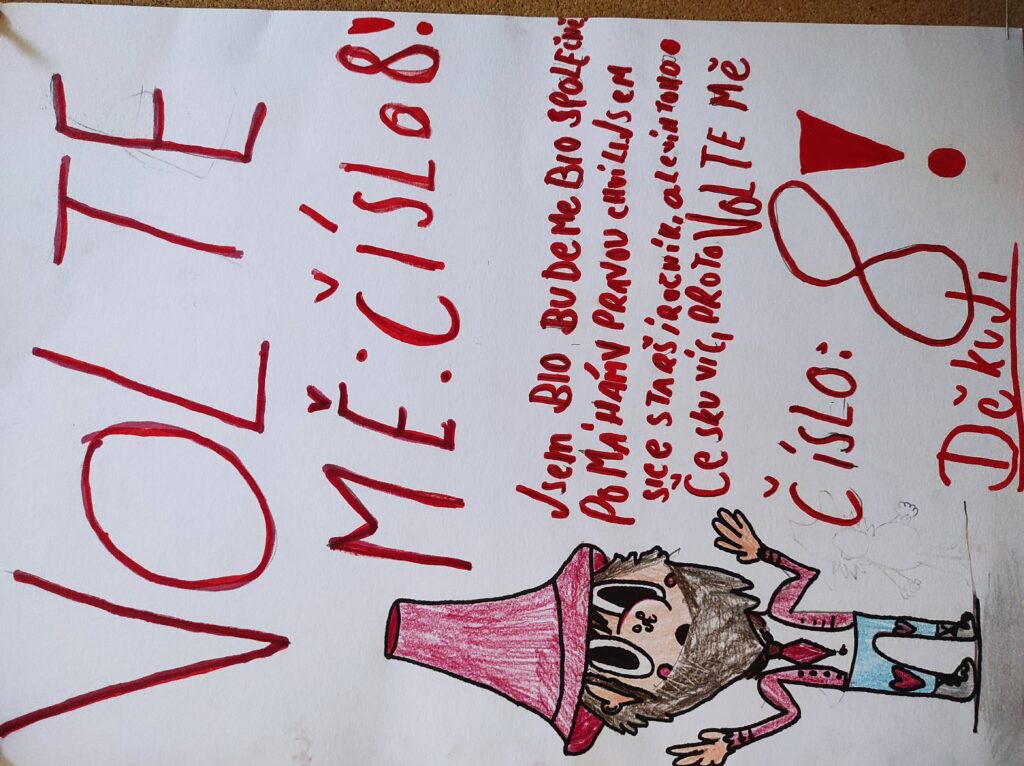 VOLTE
MĚ: ČÍSLO 8!
Jsem BIO BUDEME BIO SPOLEČNĚ
POMÁHÁM V PRAVOU CHVILI JSEM
ročník, ale vim TOHO O
Česku vic, PROTO VOLTE MĚ
ČÍSLO: 8!
Děkuji